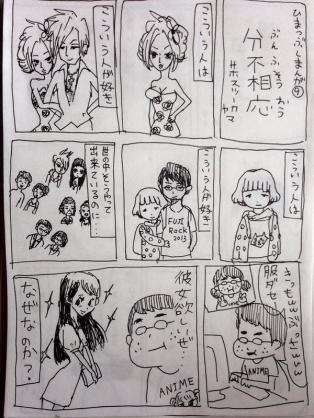 ひまつぶしまんが④
ぶんふそうおう
分不相応
#ホスッ
ヤマ
こういう人は
こういう人が好き
こういう人は
こういう人が好き
FUJI
Rock
2013
世の中そうやって
出来ているのに…
きっもwwぶっさwww
服ダセー
ANIME
彼女欲しいぜ…
ANIME
なぜなのか?